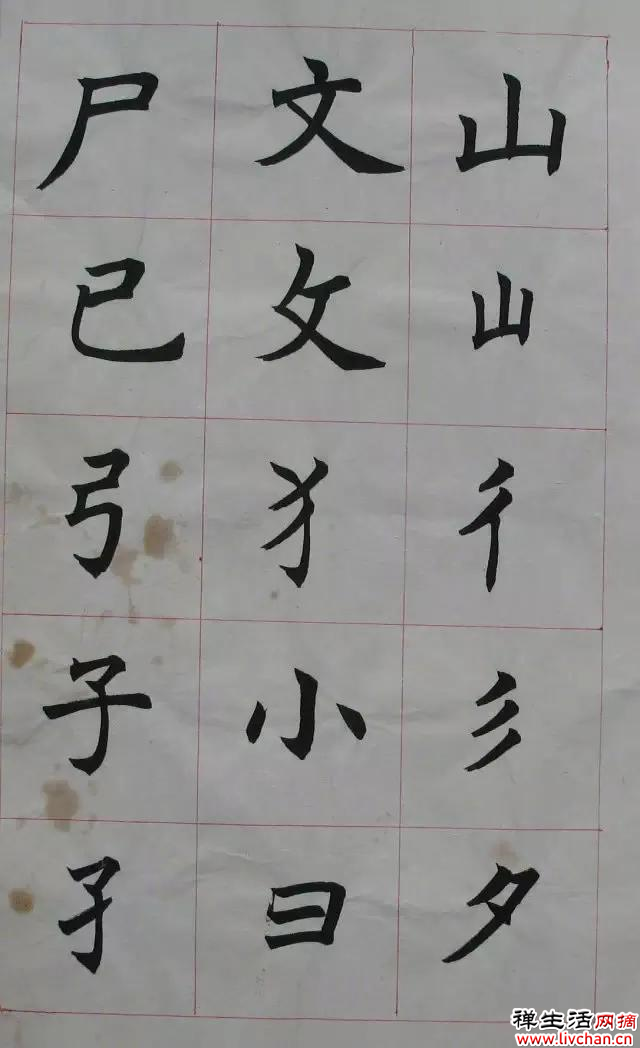 山山彳彡夕
文攵犭小曰
尸已弓子孑
禅生活网摘
www.livchan.cn